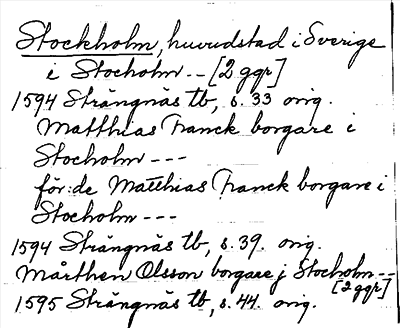 Stockholm, huvudstad i Sverige
i Stocholm -- [2 ggr]
1594 Strängnäs tb, s. 33 orig.
Matthias Franck borgare i
Stocholm ---
för:de Matthias Franck borgare i
Stocholm ---
1594 Strängnäs tb, s. 39. orig.
Mårthen Olsson borgare j Stocholm --
[2 ggr]
1595 Strängnäs tb, s. 44. orig.